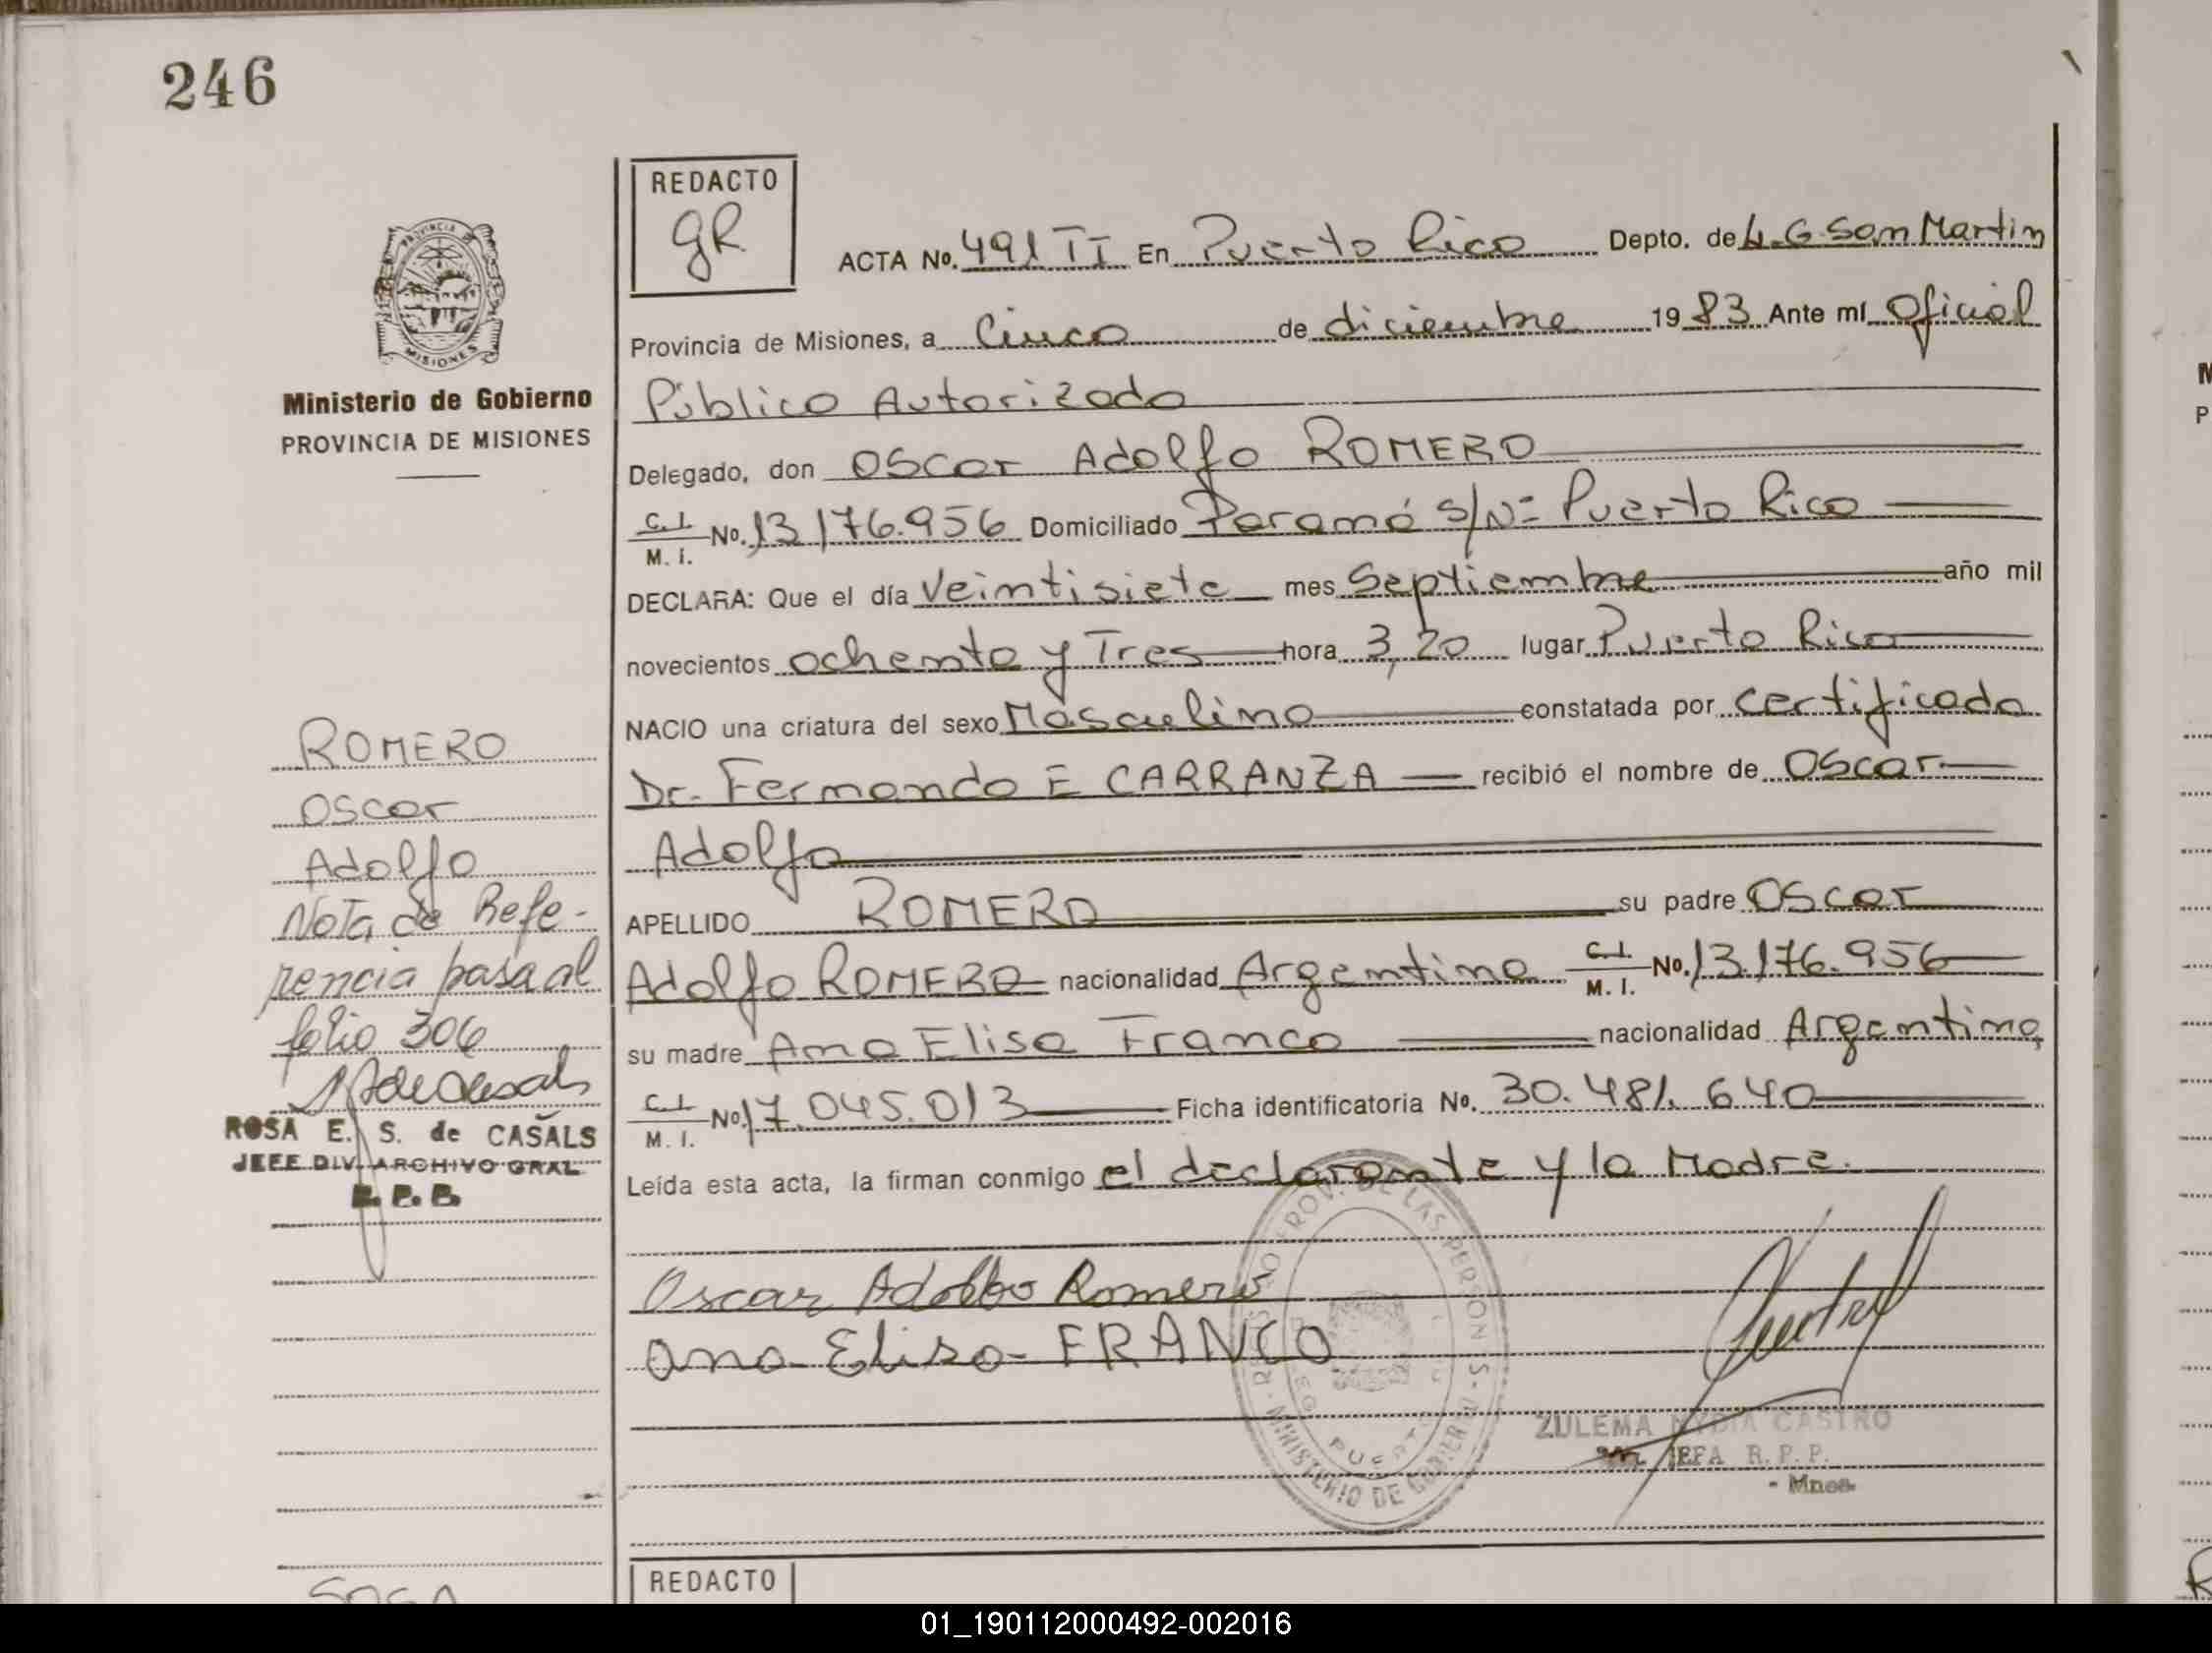 246
REDACTO
gR
ACTA No. 491 TI En Puerto Rico Depto. de L.G. San Martin
Provincia de Misiones, a Cinco de diciembre 1983 Ante mí Oficial
Público Autorizado
Delegado, don Oscar Adolfo ROMERO
C.I. M.I. No. 13.176.956 Domiciliado Paraná S/Nº Puerto Rico
DECLARA: Que el día Veintisiete mes Septiembre año mil
novecientos ochenta y Tres hora 3,20 lugar Puerto Rico
NACIO una criatura del sexo Masculino constatada por certificado
Dr. Fernando E CARRANZA recibió el nombre de Oscar
Adolfo
APELLIDO ROMERO su padre Oscar
Adolfo ROMERO nacionalidad Argentino C.I. M.I. No. 13.176.956
su madre Ana Elisa Franco nacionalidad Argentina,
C.I. M.I. No. 17.045.013 Ficha identificatoria No. 30.481.640
Leída esta acta, la firman conmigo el declarante y la Madre.
Oscar Adolfo Romero
Ana Elisa FRANCO
REGISTRO PROV. DE LAS PERSONAS - MINISTERIO DE GOBIERNO
PUERTO
ZULEMA NYDIA CASTRO
JEFA R. P. P.
- Mnes.
PROVINCIA DE
MISIONES
Ministerio de Gobierno
PROVINCIA DE MISIONES
ROMERO
Oscar
Adolfo
Nota de Refe-
rencia pasa al
folio 306
ROSA E. S. de CASALS
JEFE DIV. ARCHIVO GRAL
SOSA
REDACTO
01_190112000492-002016